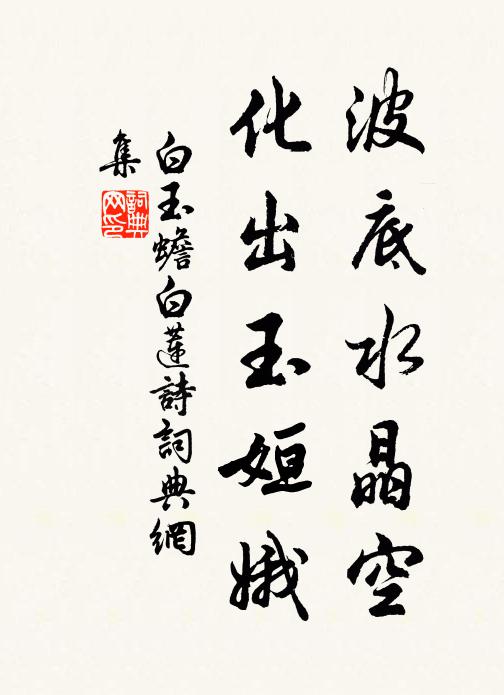 波底水晶空
化出玉姮娥
白玉蟾白蓮詩詞典網
集
詞典
网印